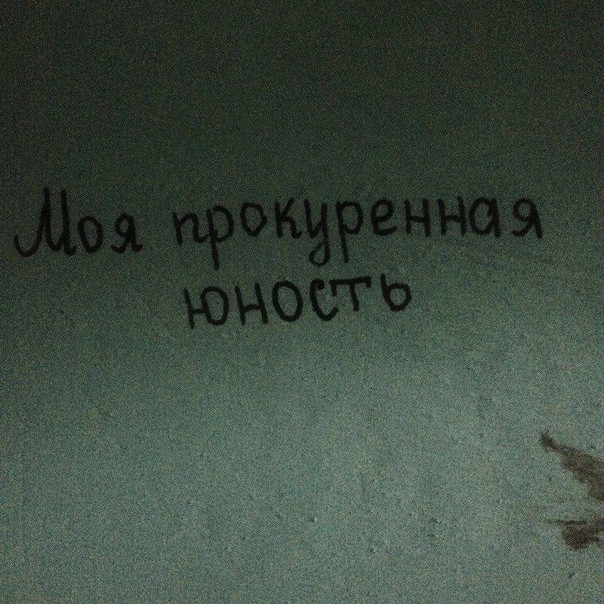 Моя прокуренная
юность